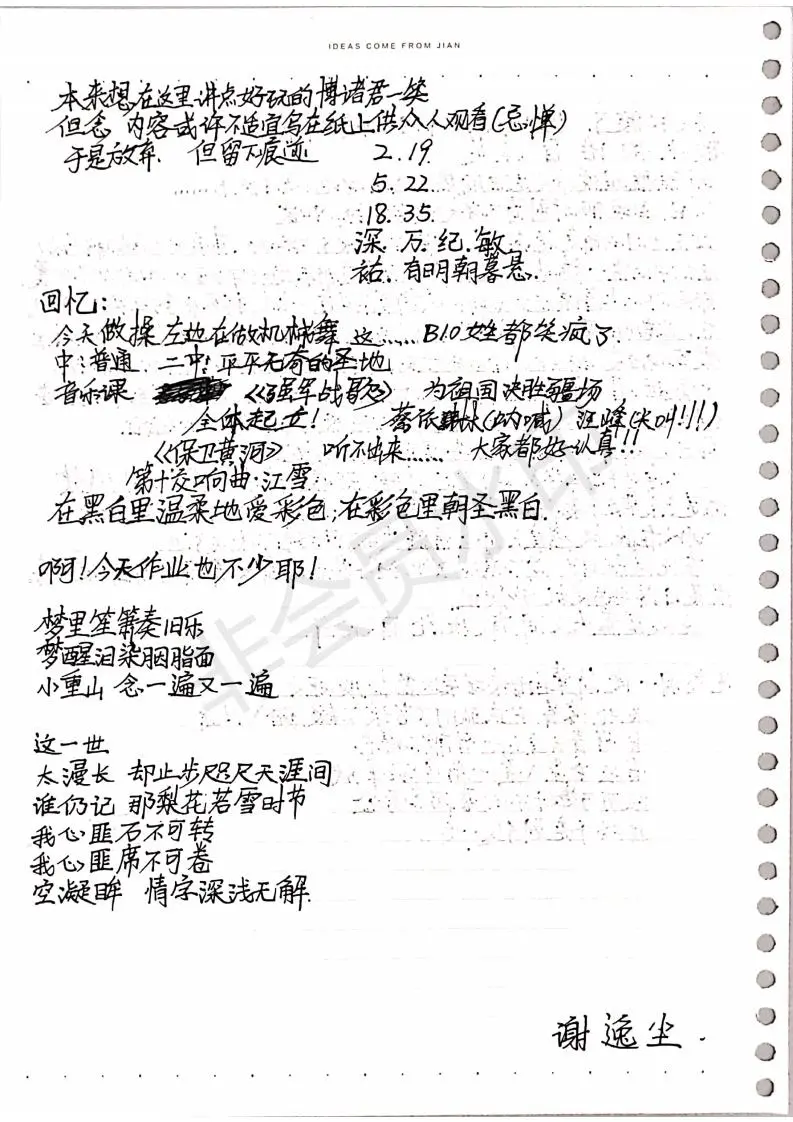 IDEAS COME FROM JIAN
本来想在这里讲点好玩的博诸君一笑
但念 内容或许不适宜写在纸上供众人观看(忌惮)
于是放弃. 但留下痕迹 2.19
5.22
18.35
深.万.纪.敏.
祐.有明朝暮悬.
回忆:
今天做操左边在做机械舞 这...... BIO姓都笑疯了
中:普通 二中:平平无奇的圣地
音乐课 《强军战歌》 为祖国决胜疆场
全体起立! 蔡依林(呐喊) 汪峰(尖叫!!!)
《保卫黄河》 听不出来...... 大家都好认真!!
第十交响曲·江雪
在黑白里温柔地爱彩色,在彩色里朝圣黑白.
啊!今天作业也不少耶!
梦里笙箫奏旧乐
梦醒泪染胭脂面
小重山 念一遍又一遍
这一世
太漫长 却止步咫尺天涯间
谁仍记 那梨花若雪时节
我心匪石不可转
我心匪席不可卷
空凝眸 情字深浅无解.
谢逸尘.
非会员水印